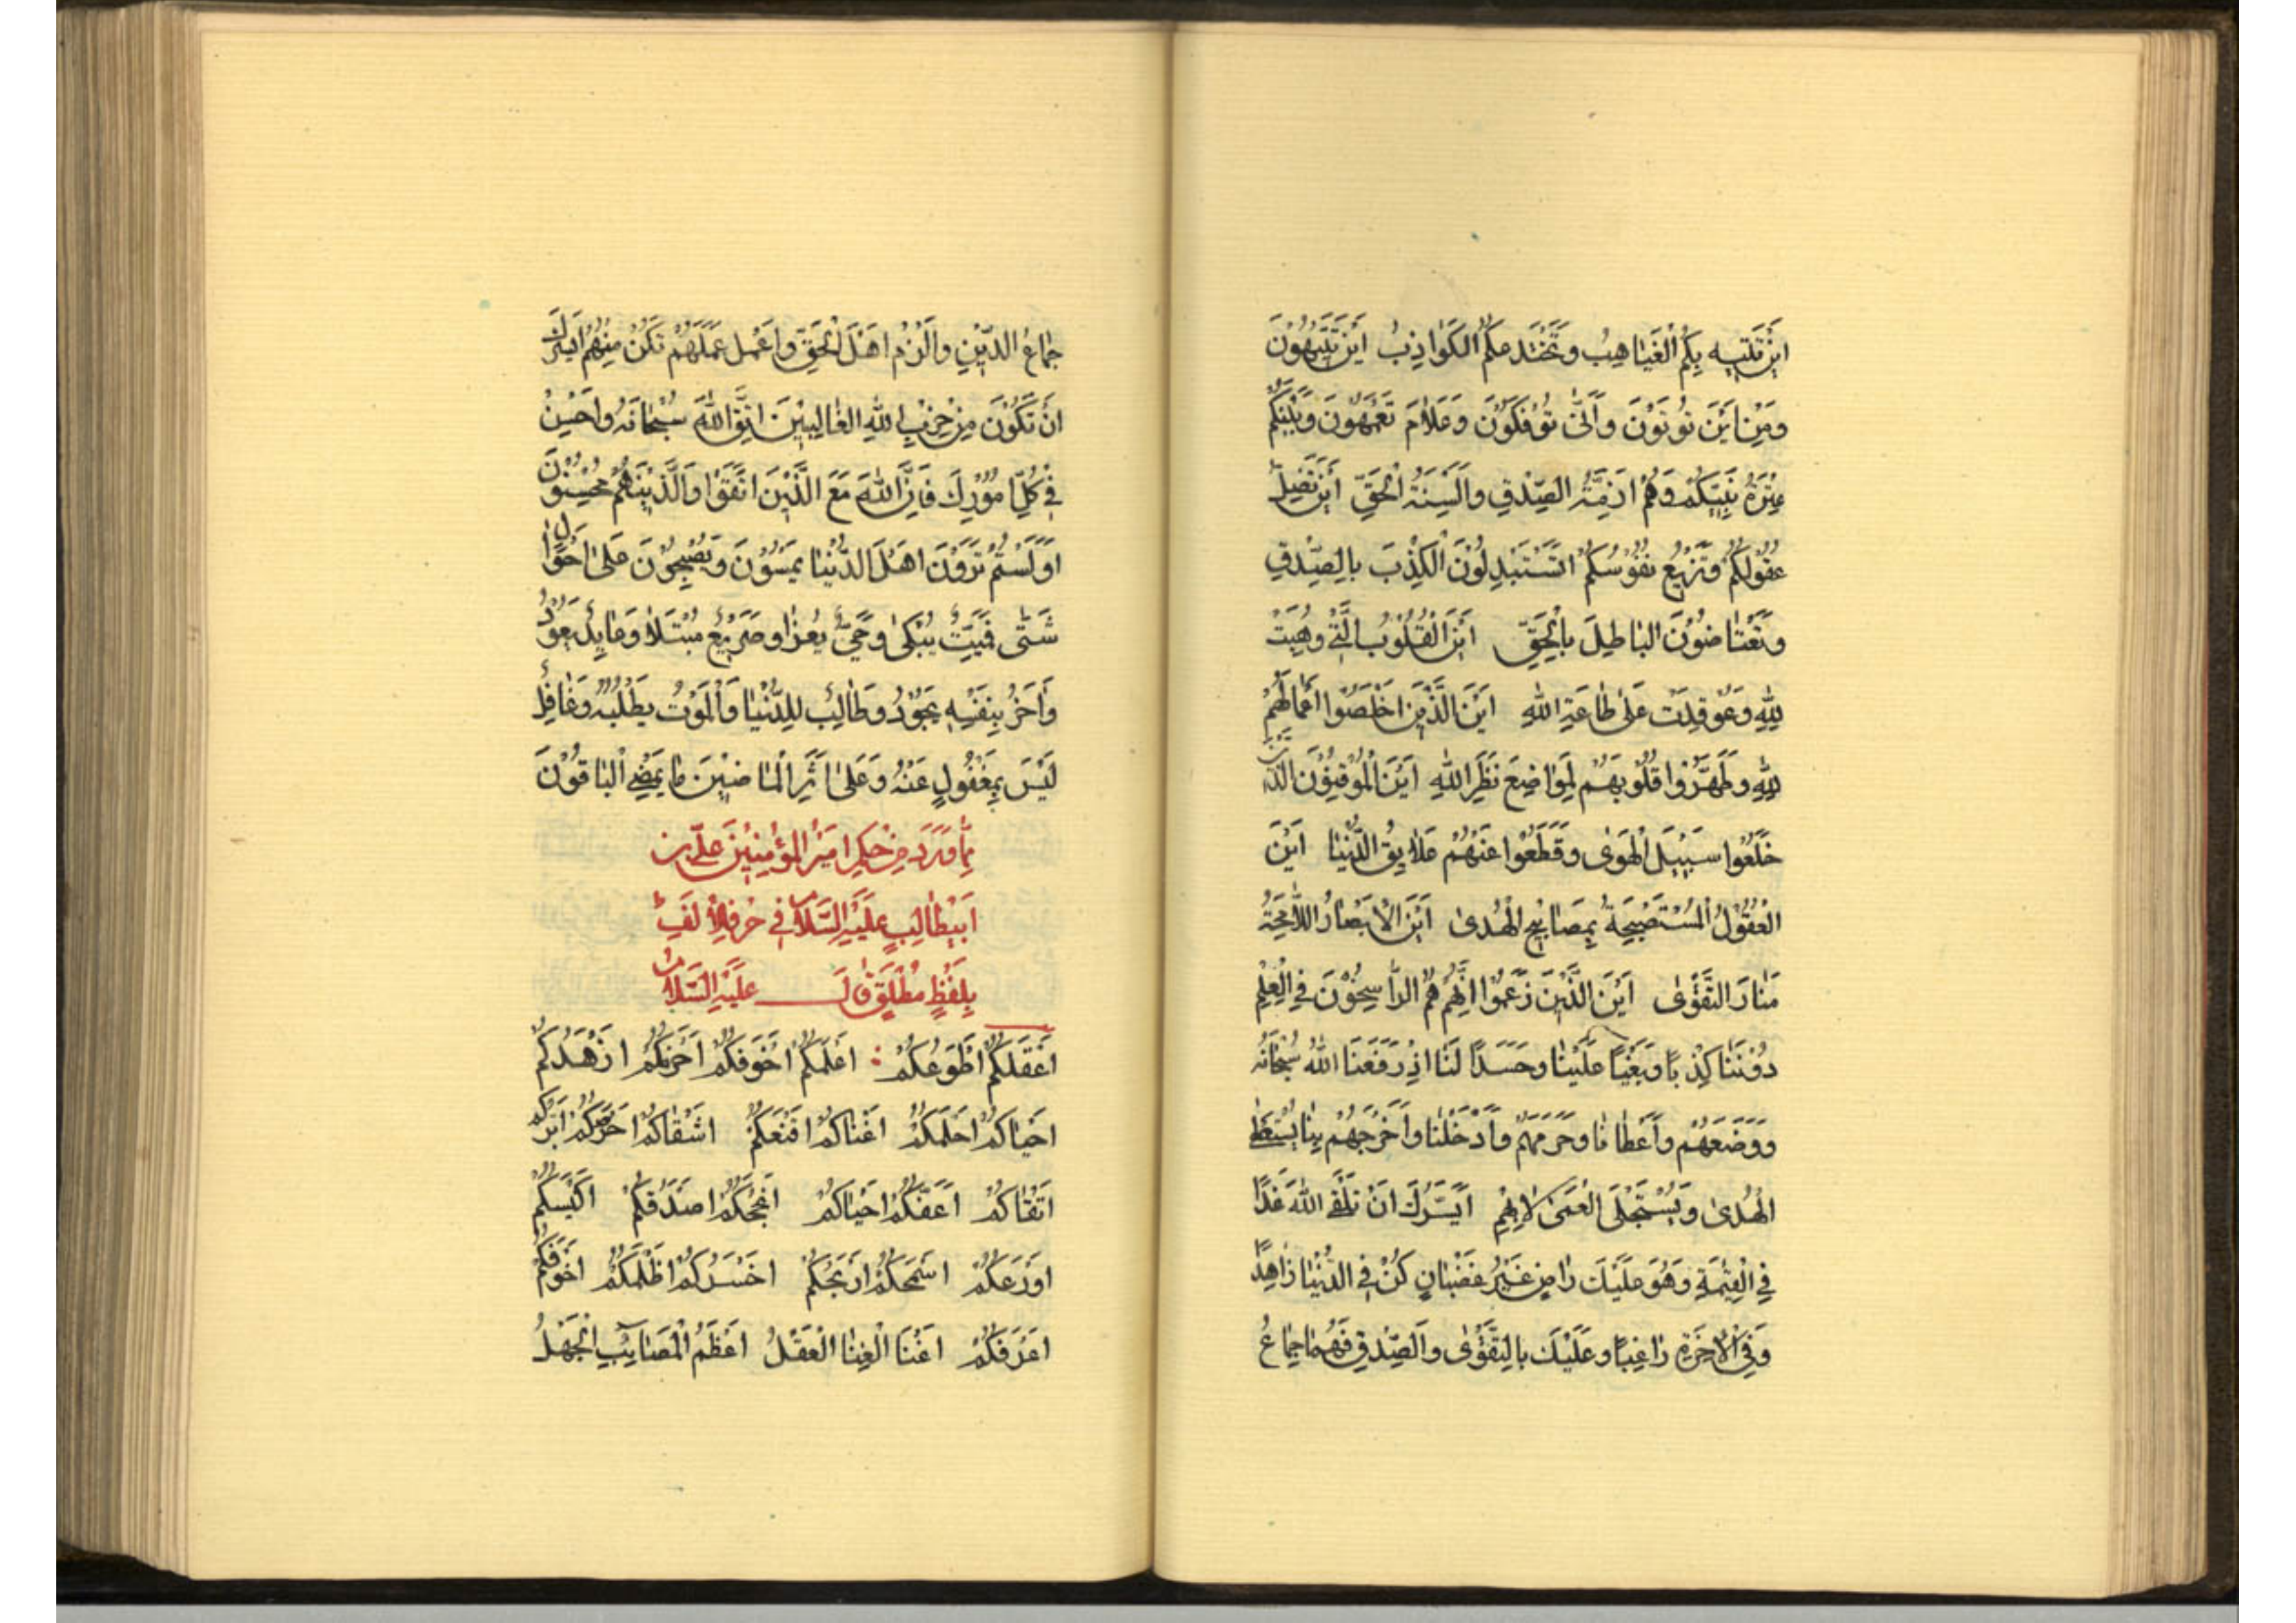 اَيْنَ تَتيه بِكُمُ الْغَيَاهِبُ وَتَخْتَدِعكُمُ الْكَوَاذِبُ اَيْنَ تَتيهُونَ
وَمِنْ اَيْنَ تُوتَوْنَ وَاَنّىٰ تُوفَكُونَ وَعَلَامَ تَعْمَهُونَ وَبَيْنَكُمْ
عِتْرَةُ نَبِيّكُمْ وَهُمْ اَزِمَّةُ الصِّدْقِ وَاَلْسِنَةُ الْحَقِّ اَيْنَ تَضِلُّ
عُقُولُكُمْ وَتَزيغُ نُفُوسُكُمْ اَتَسْتَبْدِلُونَ الْكِذْبَ بِالصِّدْقِ
وَتَعْتَاضُونَ الْبَاطِلَ بِالْحَقِّ اَيْنَ الْقُلُوبُ الَّتي وُهِبَتْ
لِلّٰهِ وَعُوقِدَتْ عَلىٰ طَاعَةِ اللهِ اَيْنَ الَّذينَ اَخْلَصُوا اَعْمَالَهُمْ
لِلّٰهِ وَطَهَّرُوا قُلُوبَهُمْ لِمَوَاضِعَ نَظَرِ اللهِ اَيْنَ الْمُوقِنُونَ الَّذينَ
خَلَعُوا سَبيلَ الْهَوىٰ وَقَطَعُوا عَنْهُمْ عَلَايِقَ الدُّنْيَا اَيْنَ
الْعُقُولُ الْمُسْتَصْبِحَةُ بِمَصَابيحِ الْهُدىٰ اَيْنَ الْاَبْصَارُ اللَّامِحَةُ
مَنَارَ التَّقْوىٰ اَيْنَ الَّذينَ زَعَمُوا اَنَّهُمْ هُمُ الرَّاسِخُونَ فِي الْعِلْمِ
دُونَنَا كِذْبًا وَبَغْيًا عَلَيْنَا وَحَسَدًا لَنَا اِذْ رَفَعَنَا اللهُ سُبْحَانَهُ
وَوَضَعَهُمْ وَاَعْطَانَا وَحَرَمَهُمْ وَاَدْخَلَنَا وَاَخْرَجَهُمْ بِنَا يُسْتَعْطَى
الْهُدىٰ وَيُسْتَجْلَى الْعَمىٰ لَابِهِمْ اَيَسُرُّكَ اَنْ تَلْقَى اللهَ غَدًا
فِي الْقِيٰمَةِ وَهُوَ عَلَيْكَ رَاضٍ غَيْرُ غَضْبَانٍ كُنْ فِي الدُّنْيَا زَاهِدًا
وَفِي الْاٰخِرَةِ رَاغِبًا وَعَلَيْكَ بِالتَّقْوىٰ وَالصِّدْقِ فَهُمَا جِمَاعُ
جِمَاعُ الدّينِ وَالْزَمْ اَهْلَ الْحَقِّ وَاعْمَلْ عَمَلَهُمْ تَكُنْ مِنْهُمْ اَيَسُرُّكَ
اَنْ تَكُونَ مِنْ حِزْبِ اللهِ الْغَالِبينَ اِتَّقِ اللهَ سُبْحَانَهُ وَاَحْسِنْ
في كُلِّ اُمُورِكَ فَاِنَّ اللهَ مَعَ الَّذينَ اتَّقَوْا وَالَّذينَهُمْ مُحْسِنُونَ
اَوَلَسْتُمْ تَرَوْنَ اَهْلَ الدُّنْيَا يُمْسُونَ وَيُصْبِحُونَ عَلىٰ اَحْوَالٍ
شَتّىٰ فَمَيِّتٌ يُبْكىٰ وَحَيٌّ يُعَزّا وَصَريعٌ مُبْتَلًا وَعَايِدٌ يَعُودُ
وَاٰخَرُ بِنَفْسِهِ يَجُودُ وَطَالِبٌ لِلدُّنْيَا وَالْمَوْتُ يَطْلُبُهُ وَغَافِلٌ
لَيْسَ بِمَغْفُولٍ عَنْهُ وَعَلىٰ اَثَرِ الْمَاضينَ مَا يَمْضِي الْبَاقُونَ
مِمَّا وَرَدَ مِنْ حِكَمِ اَميرِ الْمُؤْمِنينَ عَلِيِّ بْنِ
اَبيطَالِبٍ عَلَيْهِ السَّلَامُ في حَرْفِ الْاَلِفِ
بِلَفْظٍ مُطْلَقٍ قَالَ عَلَيْهِ السَّلَامُ
اَعْقَلُكُمْ اَطْوَعُكُمْ : اَعْلَمُكُمْ اَخْوَفُكُمْ اَحْزَمُكُمْ اَزْهَدُكُمْ
اَحْيَاكُمْ اَحْلَمُكُمْ اَغْنَاكُمْ اَقْنَعُكُمْ اَشْقَاكُمْ اَحْرَصُكُمْ اَبَرُّكُمْ
اَتْقَاكُمْ اَعَفُّكُمْ اَحْيَاكُمْ اَنْجَحُكُمْ اَصْدَقُكُمْ اَكْيَسُكُمْ
اَوْرَعُكُمْ اَسْمَحُكُمْ اَرْبَحُكُمْ اَخْسَرُكُمْ اَظْلَمُكُمْ اَخْوَفُكُمْ
اَعْرَفُكُمْ اَغْنَا الْغِنَا الْعَقْلُ اَعْظَمُ الْمَصَايِبِ الْجَهْلُ